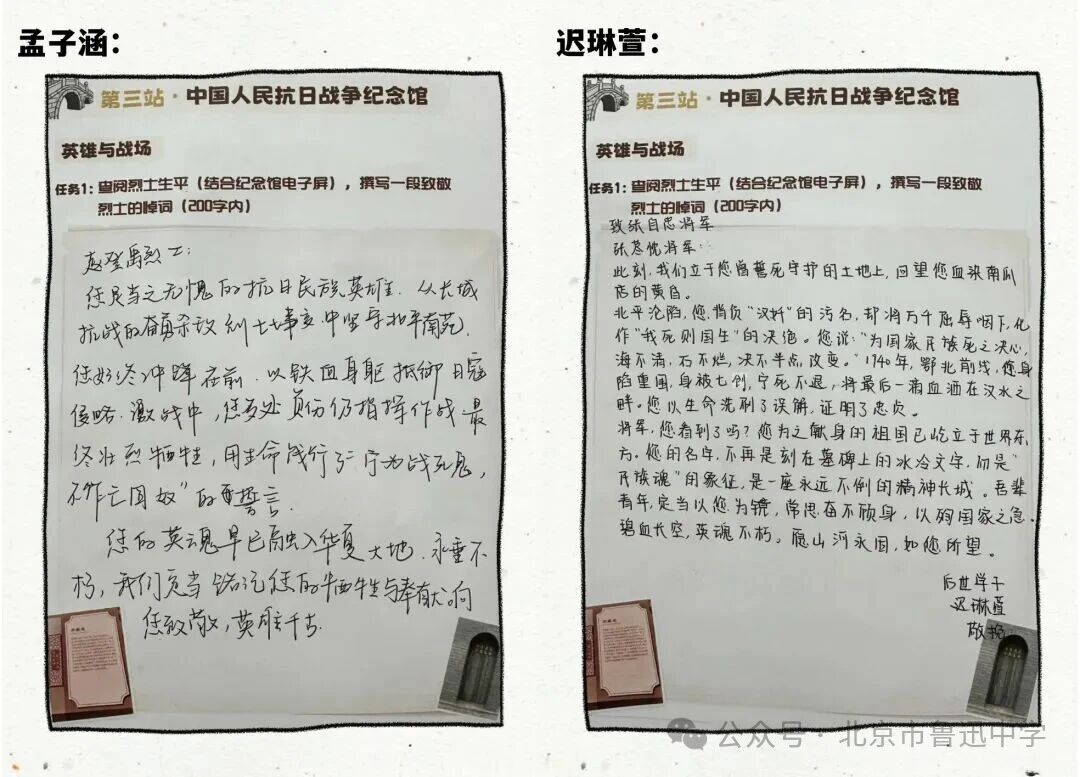 孟子涵：
第三站·中国人民抗日战争纪念馆
英雄与战场
任务1：查阅烈士生平（结合纪念馆电子屏），撰写一段致敬
烈士的悼词（200字内）
赵登禹烈士：
您是当之无愧的抗日民族英雄．从长城
抗战的奋勇杀敌到七七事变中坚守北平南苑．
您始终冲锋在前．以铁血身躯抵御日寇
侵略．激战中，您多处负伤仍指挥作战最
终壮烈牺牲，用生命践行了“宁为战死鬼，
不作亡国奴”的誓言．
您的英魂早已融入华夏大地．永垂不
朽，我们定当铭记您的牺牲与奉献，向
您致敬，英雄千古．
迟琳萱：
第三站·中国人民抗日战争纪念馆
英雄与战场
任务1：查阅烈士生平（结合纪念馆电子屏），撰写一段致敬
烈士的悼词（200字内）
致张自忠将军
张荩忱将军：
此刻，我们立于您曾誓死守护的土地上，回望您血染南瓜
店的黄昏。
北平沦陷，您背负“汉奸”的污名，却将万千屈辱咽下，化
作“我死则国生”的决绝。您说：“为国家民族死之决心，
海不清，石不烂，决不半点改变。”1940年，鄂北前线，您身
陷重围，身被七创，宁死不退，将最后一滴血洒在汉水之
畔。您以生命洗刷了误解，证明了忠贞。
将军，您看到了吗？您为之献身的祖国已屹立于世界东
方。您的名字，不再是刻在墓碑上的冰冷文字，而是“
民族魂”的象征，是一座永远不倒的精神长城。吾辈
青年，定当以您为镜，常思奋不顾身，以殉国家之急。
碧血长空，英魂不朽。愿山河永固，如您所望。
后世学子
迟琳萱
敬挽
公众号·北京市鲁迅中学